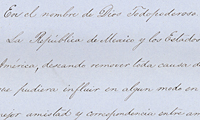 En el nombre de Dios Todopoderoso.
La República de Mexico y los Estados
América, deseando remover toda causa d
se pudiera influir en algun modo en
mejor amistad y correspondencia entre am